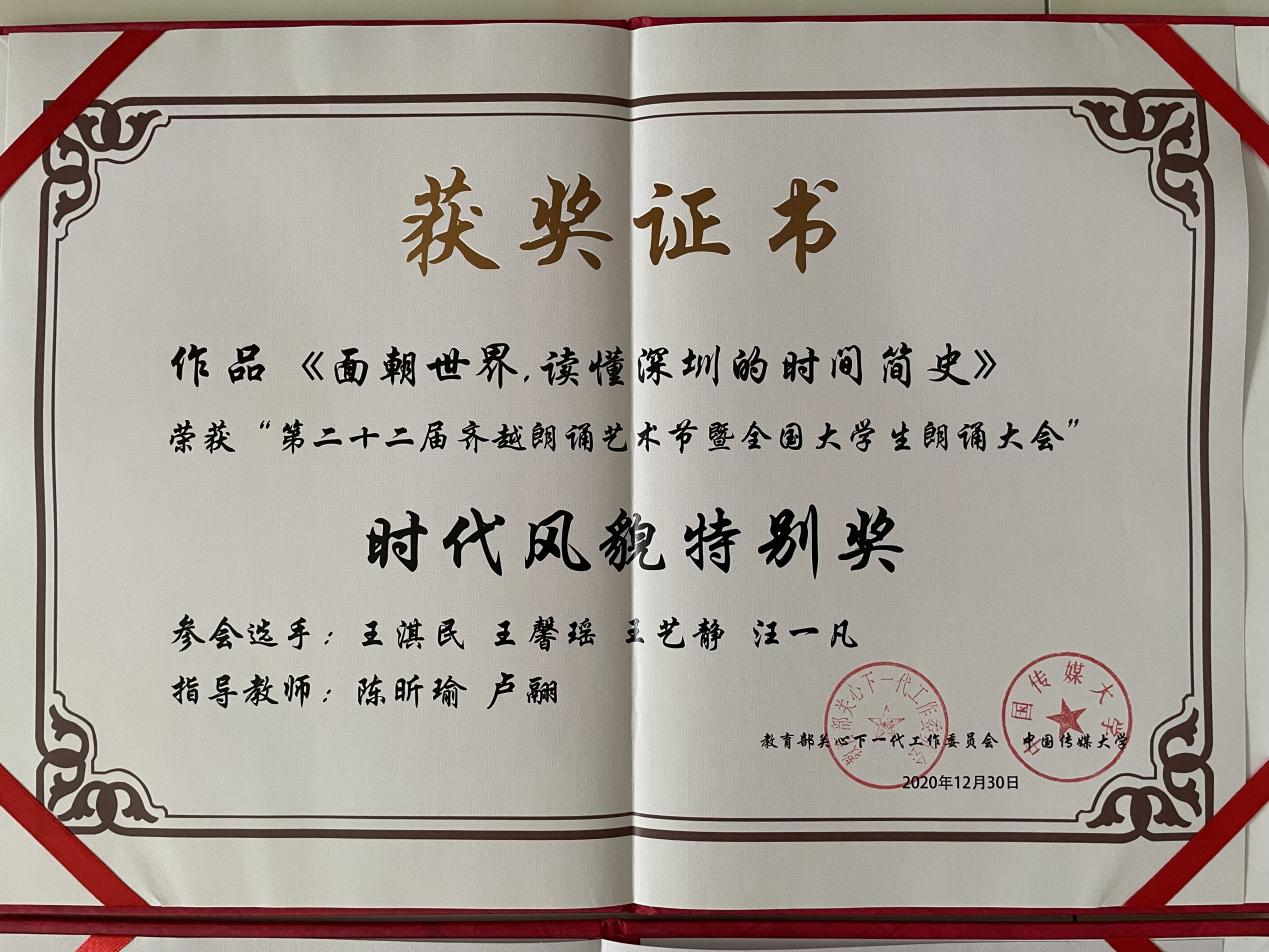 获奖证书
作品《面朝世界,读懂深圳的时间简史》
荣获“第二十二届齐越朗诵艺术节暨全国大学生朗诵大会”
时代风貌特别奖
参会选手：王淇民 王馨瑶 王艺静 汪一凡
指导教师：陈昕瑜 卢翮
教育部关心下一代工作委员会 中国传媒大学
2020年12月30日
教育部关心下一代工作委员会
中国传媒大学